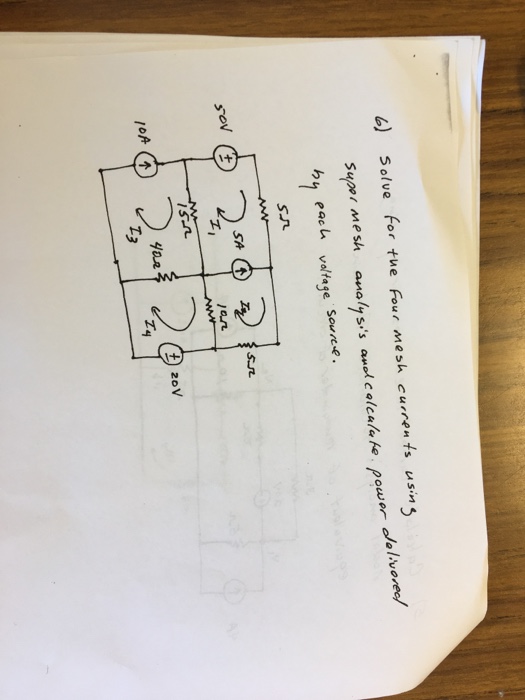 6) Solve for the four mesh currents using
super mesh analysis and calculate power delivered
by each voltage source.
5Ω
50V
I1
5A
I2
5Ω
15Ω
10Ω
10A
I3
40Ω
I4
20V